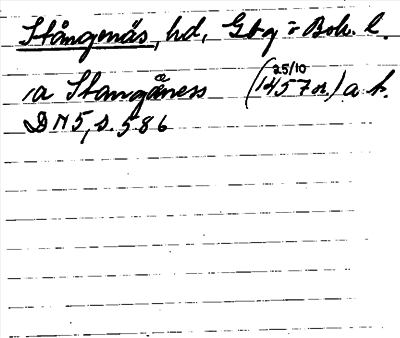 Stångenäs, hd, Gbg o Boh. l.
ia Stangåness (25/10 1457 n.) a. k.
DN 5, s. 586